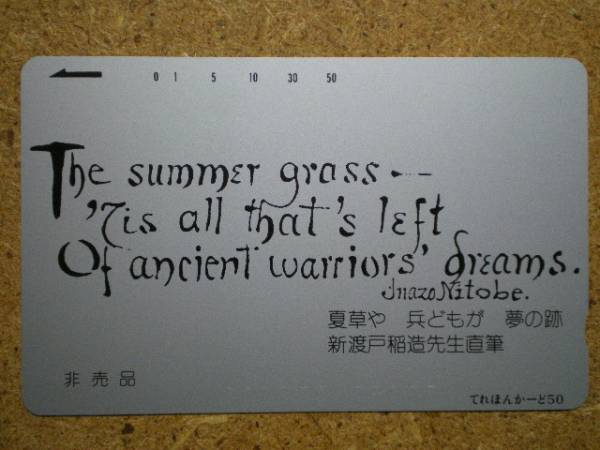 0 1 5 10 30 50
The summer grass ·--
'Tis all that's left
Of ancient warriors' dreams.
Inazo Nitobe.
夏草や 兵どもが 夢の跡
新渡戸稲造先生直筆
非売品
てれほんかーど50